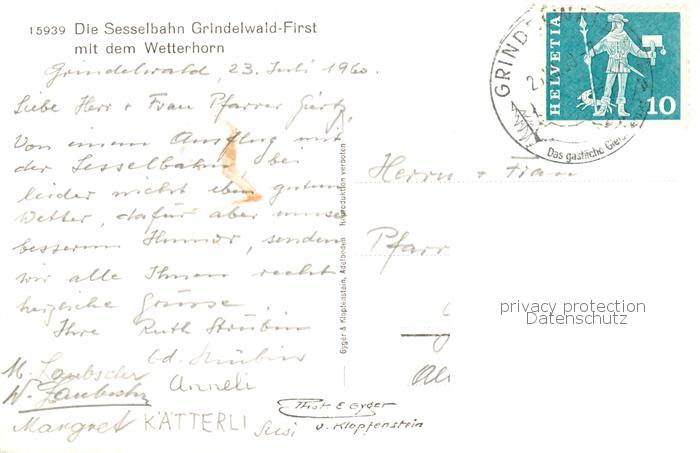 15939 Die Sesselbahn Grindelwald-First
mit dem Wetterhorn
Grindelwald, 23. Juli 1960.
Liebe Herr + Frau Pfarrer
Von einem Ausflug mit
der Sesselbahn bei
leider nicht eben gutem
Wetter, dafür aber umso
besserem Humor, senden
wir alle Ihnen recht
herzliche Grüsse.
Ihre Ruth Strübin
Ed. Strübin
M. Laubscher
Anneli
W. Laubscher
Margret KÄTTERLI Susi
Gyger & Klopfenstein, Adelboden Reproduktion verboten
GRINDELWALD
Das gastliche
HELVETIA
10
Herrn + Frau
Pfarr
privacy protection
Datenschutz
Phot. E. Gyger
u. Klopfenstein